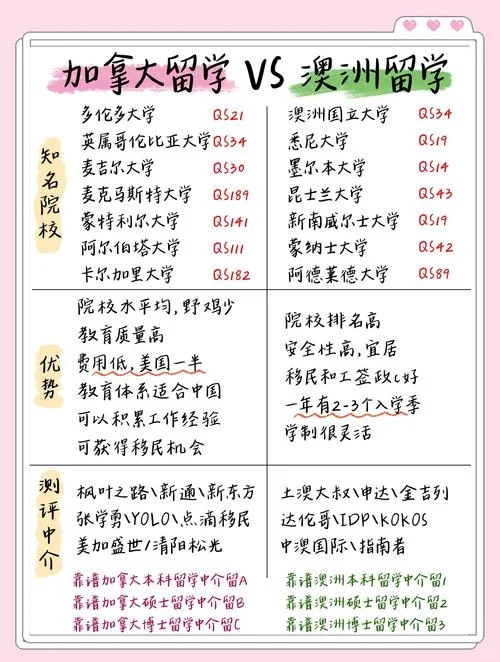 加拿大留学 VS 澳洲留学
知名院校
多伦多大学 QS21
英属哥伦比亚大学 QS34
麦吉尔大学 QS30
麦克马斯特大学 QS189
蒙特利尔大学 QS141
阿尔伯塔大学 QS111
卡尔加里大学 QS182
澳洲国立大学 QS34
悉尼大学 QS19
墨尔本大学 QS14
昆士兰大学 QS43
新南威尔士大学 QS19
蒙纳士大学 QS42
阿德莱德大学 QS89
优势
院校水平均,野鸡少
教育质量高
费用低,美国一半
教育体系适合中国
可以积累工作经验
可获得移民机会
院校排名高
安全性高,宜居
移民和工签政c好
一年有2-3个入学季
学制很灵活
测评中介
枫叶之路\新通\新东方
张学勇\YOLO\点滴移民
美加盛世/清阳松光
土澳大叔\申达\金吉列
达伦哥\IDP\KOKOS
中澳国际\指南者
靠谱加拿大本科留学中介留A
靠谱加拿大硕士留学中介留B
靠谱加拿大博士留学中介留C
靠谱澳洲本科留学中介留1
靠谱澳洲硕士留学中介留2
靠谱澳洲博士留学中介留3